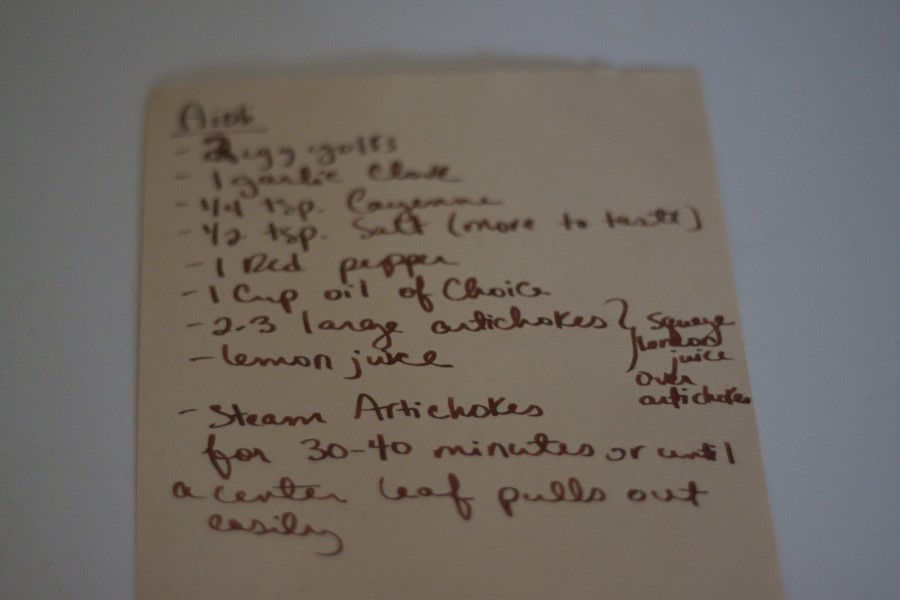 Aioli
- 2 egg yolks
- 1 garlic clove
- 1/4 tsp. Cayenne
- 1/2 tsp. Salt (more to taste)
- 1 Red pepper
- 1 Cup oil of Choice
- 2-3 large artichokes
- lemon juice
Squeeze
lemon
juice
over
artichokes
- Steam Artichokes
for 30-40 minutes or until
a center leaf pulls out
easily